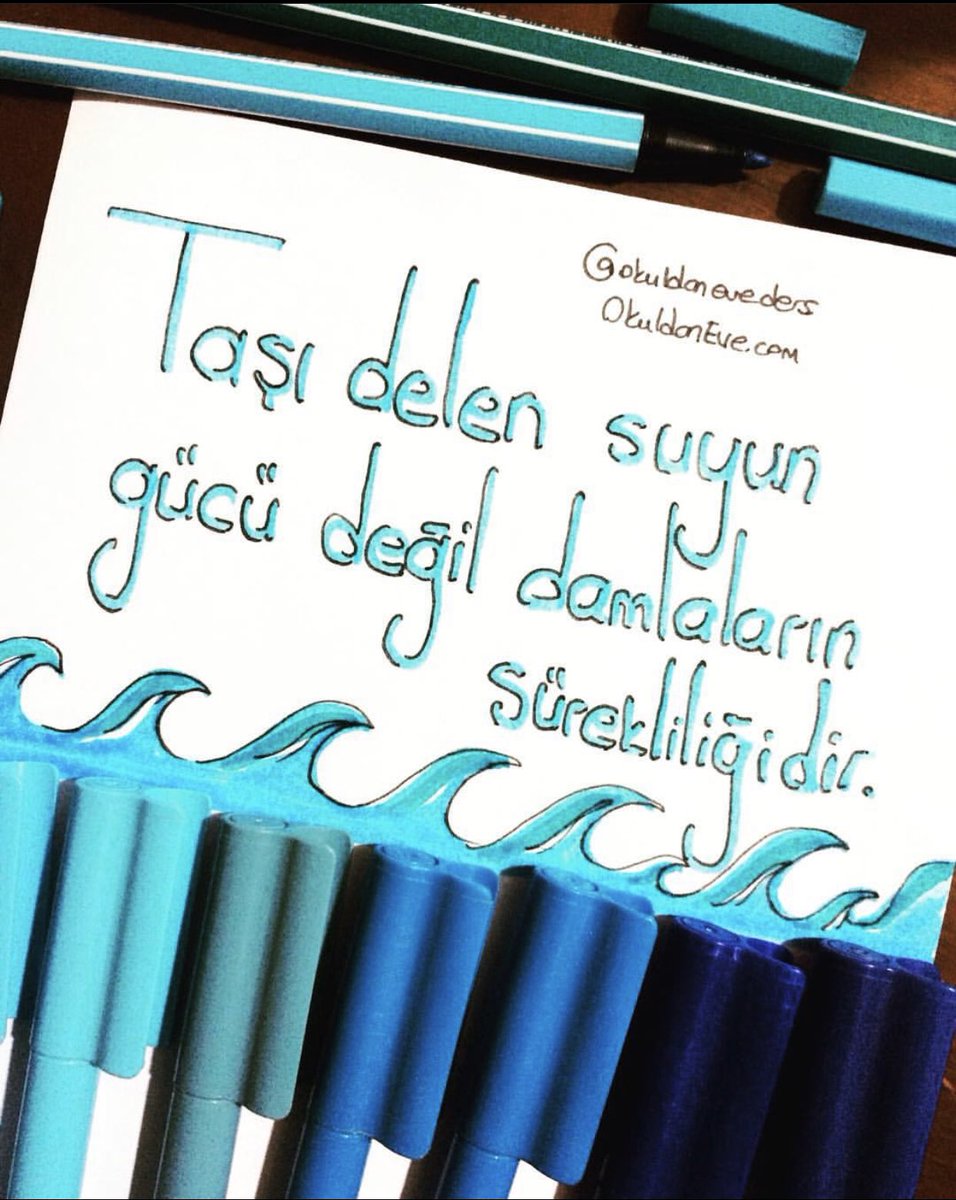 @okuldaneveders
OkuldanEve.com
Taşı delen suyun
gücü değil damlaların
sürekliliğidir.